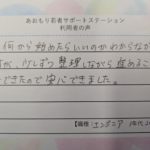 あおもり若者サポートステーション
利用者の声
何から始めたらいいのかわからなか
が、少しずつ整理しながら進めるこ
できたので安心できました。
【職種：エンジニア 年代 2